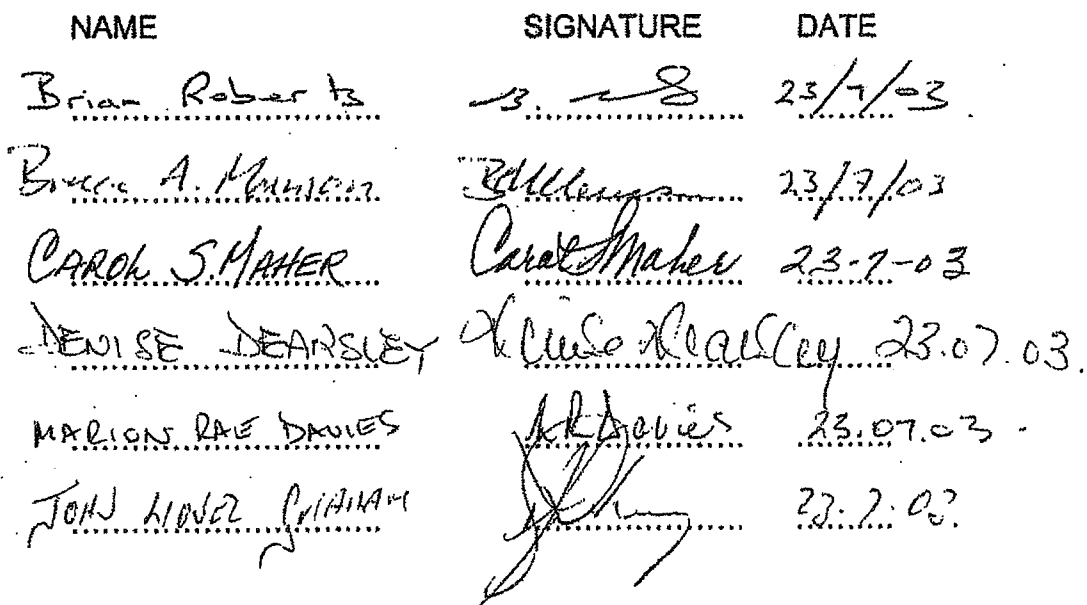 NAME SIGNATURE DATE
Brian Roberts B. 23/7/03
A. 23/7/03
CAROL S. MAHER Carol S Maher 23-7-03
DENISE DEARSLEY Denise Dearsley 23.07.03.
MARION RAE DAVIES Davies 23.07.03.
JOHN LIONEL GRAHAM 23.7.03.